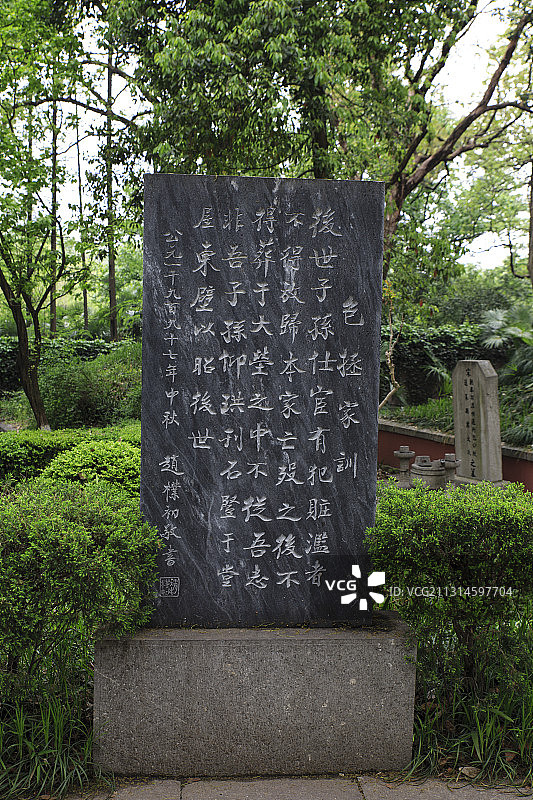 包拯家訓
後世子孫仕宦有犯賍濫者
不得放歸本家亡殁之後不
得葬于大塋之中不從吾志
非吾子孫仰珙刊石豎于堂
屋東壁以昭後世
公元一千九百九十七年中秋 趙樸初敬書
VCG
ID:VCG211314597704